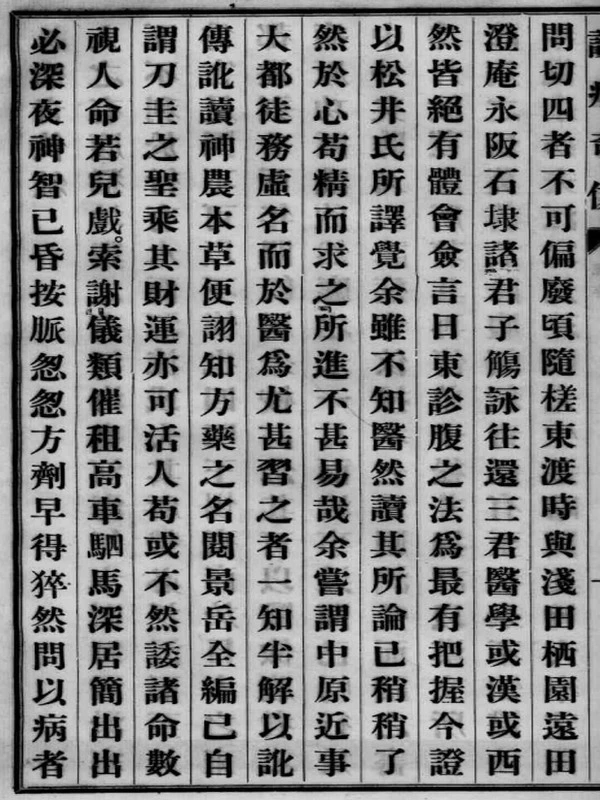 問切四者不可偏廢頃隨槎東渡時與淺田栖園遠田
澄庵永阪石埭諸君子觴詠往還三君醫學或漢或西
然皆絕有體會僉言日東診腹之法爲最有把握今證
以松井氏所譯覺余雖不知醫然讀其所論已稍稍了
然於心苟精而求之所進不甚易哉余嘗謂中原近事
大都徒務虛名而於醫爲尤甚習之者一知半解以訛
傳訛讀神農本草便詡知方藥之名閱景岳全編已自
謂刀圭之聖乘其財運亦可活人苟或不然諉諸命數
視人命若兒戲。索謝儀類催租高車駟馬深居簡出出
必深夜神智已昏按脈怱怱方劑早得猝然問以病者